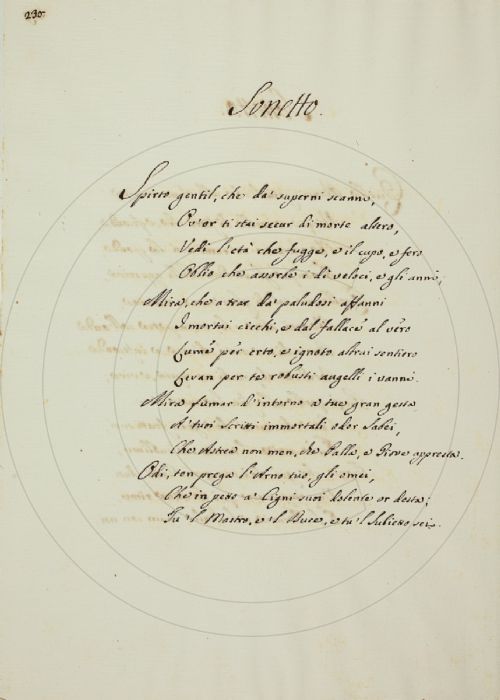 230.
Sonetto.
Spirto gentil, che da' superni scanni,
Ov'or ti stai secur di morte altero,
Vedi l'età che fugge, e il cupo, e fero
Oblio che assorbe i dì veloci, e gli anni;
Mira, che a trar da' paludosi affanni
I mortai ciechi, e dal fallace al vero
Lume per erto, e ignoto altrui sentiero
Levan per te robusti augelli i vanni.
Mira fumar d'intorno a tue gran gesta
A' tuoi Scritti immortali odor Sabei,
Che Astrea non men, che Palla, e Giove appresta.
Odi, ten prega l'Arno tuo, gli omei,
Che in petto a' Cigni suoi dolente or desta;
Tu 'l Mastro, e 'l Duce, e tu 'l Subietto sei.